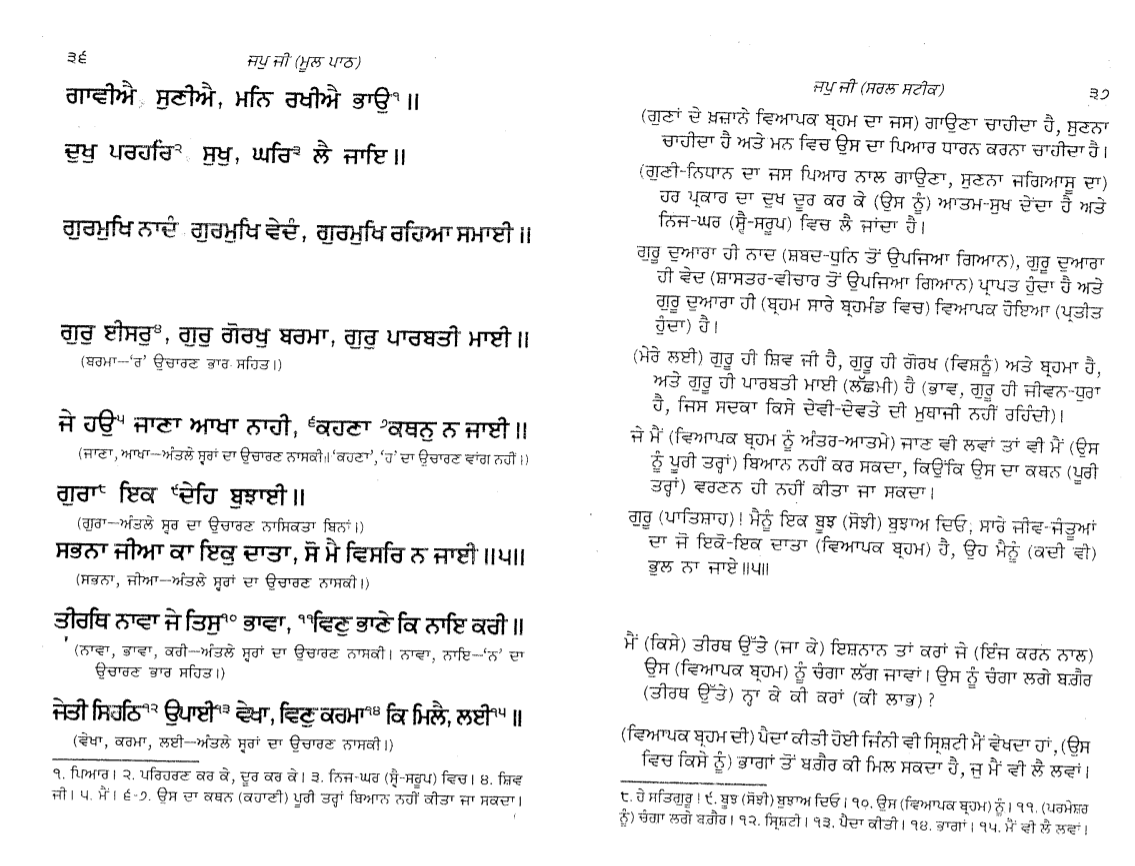 ੩੬
ਜਪੁ ਜੀ (ਮੂਲ ਪਾਠ)
ਗਾਵੀਐ ਸੁਣੀਐ, ਮਨਿ ਰਖੀਐ ਭਾਉ੧ ॥
ਦੁਖੁ ਪਰਹਰਿ੨ ਸੁਖੁ, ਘਰਿ੩ ਲੈ ਜਾਇ ॥
ਗੁਰਮੁਖਿ ਨਾਦੰ ਗੁਰਮੁਖਿ ਵੇਦੰ, ਗੁਰਮੁਖਿ ਰਹਿਆ ਸਮਾਈ ॥
ਗੁਰੁ ਈਸਰੁ੪, ਗੁਰੁ ਗੋਰਖੁ ਬਰਮਾ, ਗੁਰੁ ਪਾਰਬਤੀ ਮਾਈ ॥
(ਬਰਮਾ—'ਰ' ਉਚਾਰਣ ਭਾਰ ਸਹਿਤ।)
ਜੇ ਹਉ੫ ਜਾਣਾ ਆਖਾ ਨਾਹੀ, ੬ਕਹਣਾ ੭ਕਥਨੁ ਨ ਜਾਈ ॥
(ਜਾਣਾ, ਆਖਾ—ਅੰਤਲੇ ਸ੍ਵਰਾਂ ਦਾ ਉਚਾਰਣ ਨਾਸਕੀ।। 'ਕਹਣਾ', 'ਹ' ਦਾ ਉਚਾਰਣ ਵਾਂਗ ਨਹੀਂ।)
ਗੁਰਾ੮ ਇਕ ੯ਦੇਹਿ ਬੁਝਾਈ ॥
(ਗੁਰਾ—ਅੰਤਲੇ ਸ੍ਵਰ ਦਾ ਉਚਾਰਣ ਨਾਸਿਕਤਾ ਬਿਨਾਂ।)
ਸਭਨਾ ਜੀਆ ਕਾ ਇਕੁ ਦਾਤਾ, ਸੋ ਮੈ ਵਿਸਰਿ ਨ ਜਾਈ ॥੫॥
(ਸਭਨਾ, ਜੀਆ—ਅੰਤਲੇ ਸ੍ਵਰਾਂ ਦਾ ਉਚਾਰਣ ਨਾਸਕੀ।)
ਤੀਰਥਿ ਨਾਵਾ ਜੇ ਤਿਸੁ੧੦ ਭਾਵਾ, ੧੧ਵਿਣੁ ਭਾਣੇ ਕਿ ਨਾਇ ਕਰੀ ॥
(ਨਾਵਾ, ਭਾਵਾ, ਕਰੀ—ਅੰਤਲੇ ਸ੍ਵਰਾਂ ਦਾ ਉਚਾਰਣ ਨਾਸਕੀ। ਨਾਵਾ, ਨਾਇ—'ਨ' ਦਾ
ਉਚਾਰਣ ਭਾਰ ਸਹਿਤ।)
ਜੇਤੀ ਸਿਰਠਿ੧੨ ਉਪਾਈ੧੩ ਵੇਖਾ, ਵਿਣੁ ਕਰਮਾ੧੪ ਕਿ ਮਿਲੈ, ਲਈ੧੫ ॥
(ਵੇਖਾ, ਕਰਮਾ, ਲਈ—ਅੰਤਲੇ ਸ੍ਵਰਾਂ ਦਾ ਉਚਾਰਣ ਨਾਸਕੀ।)
੧. ਪਿਆਰ। ੨. ਪਰਿਹਰਣ ਕਰ ਕੇ, ਦੂਰ ਕਰ ਕੇ। ੩. ਨਿਜ-ਘਰ (ਸ੍ਵੈ-ਸਰੂਪ) ਵਿਚ। ੪. ਸ਼ਿਵ
ਜੀ। ੫. ਮੈਂ। ੬-੭. ਉਸ ਦਾ ਕਥਨ (ਕਹਾਣੀ) ਪੂਰੀ ਤਰ੍ਹਾਂ ਬਿਆਨ ਨਹੀਂ ਕੀਤਾ ਜਾ ਸਕਦਾ।
ਜਪੁ ਜੀ (ਸਰਲ ਸਟੀਕ)
੩੭
(ਗੁਣਾਂ ਦੇ ਖ਼ਜ਼ਾਨੇ ਵਿਆਪਕ ਬ੍ਰਹਮ ਦਾ ਜਸ) ਗਾਉਣਾ ਚਾਹੀਦਾ ਹੈ, ਸੁਣਨਾ
ਚਾਹੀਦਾ ਹੈ ਅਤੇ ਮਨ ਵਿਚ ਉਸ ਦਾ ਪਿਆਰ ਧਾਰਨ ਕਰਨਾ ਚਾਹੀਦਾ ਹੈ।
(ਗੁਣੀ-ਨਿਧਾਨ ਦਾ ਜਸ ਪਿਆਰ ਨਾਲ ਗਾਉਣਾ, ਸੁਣਨਾ ਜਗਿਆਸੂ ਦਾ)
ਹਰ ਪ੍ਰਕਾਰ ਦਾ ਦੁਖ ਦੂਰ ਕਰ ਕੇ (ਉਸ ਨੂੰ) ਆਤਮ-ਸੁਖ ਦੇਂਦਾ ਹੈ ਅਤੇ
ਨਿਜ-ਘਰ (ਸ੍ਵੈ-ਸਰੂਪ) ਵਿਚ ਲੈ ਜਾਂਦਾ ਹੈ।
ਗੁਰੂ ਦੁਆਰਾ ਹੀ ਨਾਦ (ਸ਼ਬਦ-ਧੁਨਿ ਤੋਂ ਉਪਜਿਆ ਗਿਆਨ), ਗੁਰੂ ਦੁਆਰਾ
ਹੀ ਵੇਦ (ਸ਼ਾਸਤਰ-ਵੀਚਾਰ ਤੋਂ ਉਪਜਿਆ ਗਿਆਨ) ਪ੍ਰਾਪਤ ਹੁੰਦਾ ਹੈ ਅਤੇ
ਗੁਰੂ ਦੁਆਰਾ ਹੀ (ਬ੍ਰਹਮ ਸਾਰੇ ਬ੍ਰਹਮੰਡ ਵਿਚ) ਵਿਆਪਕ ਹੋਇਆ (ਪ੍ਰਤੀਤ
ਹੁੰਦਾ) ਹੈ।
(ਮੇਰੇ ਲਈ) ਗੁਰੂ ਹੀ ਸ਼ਿਵ ਜੀ ਹੈ, ਗੁਰੂ ਹੀ ਗੋਰਖ (ਵਿਸ਼ਨੂੰ) ਅਤੇ ਬ੍ਰਹਮਾ ਹੈ,
ਅਤੇ ਗੁਰੂ ਹੀ ਪਾਰਬਤੀ ਮਾਈ (ਲੱਛਮੀ) ਹੈ (ਭਾਵ, ਗੁਰੂ ਹੀ ਜੀਵਨ-ਧੁਰਾ
ਹੈ, ਜਿਸ ਸਦਕਾ ਕਿਸੇ ਦੇਵੀ-ਦੇਵਤੇ ਦੀ ਮੁਥਾਜੀ ਨਹੀਂ ਰਹਿੰਦੀ)।
ਜੇ ਮੈਂ (ਵਿਆਪਕ ਬ੍ਰਹਮ ਨੂੰ ਅੰਤਰ-ਆਤਮੇ) ਜਾਣ ਵੀ ਲਵਾਂ ਤਾਂ ਵੀ ਮੈਂ (ਉਸ
ਨੂੰ ਪੂਰੀ ਤਰ੍ਹਾਂ) ਬਿਆਨ ਨਹੀਂ ਕਰ ਸਕਦਾ, ਕਿਉਂਕਿ ਉਸ ਦਾ ਕਥਨ (ਪੂਰੀ
ਤਰ੍ਹਾਂ) ਵਰਣਨ ਹੀ ਨਹੀਂ ਕੀਤਾ ਜਾ ਸਕਦਾ।
ਗੁਰੂ (ਪਾਤਿਸ਼ਾਹ)! ਮੈਨੂੰ ਇਕ ਬੂਝ (ਸੋਝੀ) ਬੁਝਾਅ ਦਿਓ; ਸਾਰੇ ਜੀਵ-ਜੰਤੂਆਂ
ਦਾ ਜੋ ਇਕੋ-ਇਕ ਦਾਤਾ (ਵਿਆਪਕ ਬ੍ਰਹਮ) ਹੈ, ਉਹ ਮੈਨੂੰ (ਕਦੀ ਵੀ)
ਭੁਲ ਨਾ ਜਾਏ ॥੫॥
ਮੈਂ (ਕਿਸੇ) ਤੀਰਥ ਉੱਤੇ (ਜਾ ਕੇ) ਇਸ਼ਨਾਨ ਤਾਂ ਕਰਾਂ ਜੇ (ਇੰਜ ਕਰਨ ਨਾਲ)
ਉਸ (ਵਿਆਪਕ ਬ੍ਰਹਮ) ਨੂੰ ਚੰਗਾ ਲੱਗ ਜਾਵਾਂ। ਉਸ ਨੂੰ ਚੰਗਾ ਲਗੇ ਬਗ਼ੈਰ
(ਤੀਰਥ ਉੱਤੇ) ਨ੍ਹਾ ਕੇ ਕੀ ਕਰਾਂ (ਕੀ ਲਾਭ) ?
(ਵਿਆਪਕ ਬ੍ਰਹਮ ਦੀ) ਪੈਦਾ ਕੀਤੀ ਹੋਈ ਜਿੰਨੀ ਵੀ ਸ੍ਰਿਸ਼ਟੀ ਮੈਂ ਵੇਖਦਾ ਹਾਂ, (ਉਸ
ਵਿਚ ਕਿਸੇ ਨੂੰ) ਭਾਗਾਂ ਤੋਂ ਬਗ਼ੈਰ ਕੀ ਮਿਲ ਸਕਦਾ ਹੈ, ਜੁ ਮੈਂ ਵੀ ਲੈ ਲਵਾਂ।
੮. ਹੇ ਸਤਿਗੁਰੂ ! ੯. ਬੂਝ (ਸੋਝੀ) ਬੁਝਾਅ ਦਿਓ। ੧੦. ਉਸ (ਵਿਆਪਕ ਬ੍ਰਹਮ) ਨੂੰ। ੧੧. (ਪਰਮੇਸ਼ਰ
ਨੂੰ) ਚੰਗਾ ਲਗੇ ਬਗ਼ੈਰ। ੧੨. ਸ੍ਰਿਸ਼ਟੀ। ੧੩. ਪੈਦਾ ਕੀਤੀ। ੧੪. ਭਾਗਾਂ। ੧੫. ਮੈਂ ਵੀ ਲੈ ਲਵਾਂ।